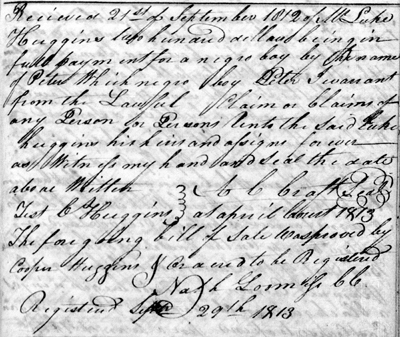 Received 21st of September 1812 of Mr Luke
Huggins two hundred dollars being in
full payment for a negro boy by the name
of Peter Which negro boy Peter I warrant
from the Lawful Claim or Claims of
any Person or Persons Unto the said Luke
Huggins his heirs and assigns for ever
as Witness my hand and seal the date
above Written C C Craft Seal
Test C Huggins at April Court 1813
The foregoing bill of Sale was proved by
Casper Huggins & Orderred to be Registered
Nath CC
Registered 29th 1813